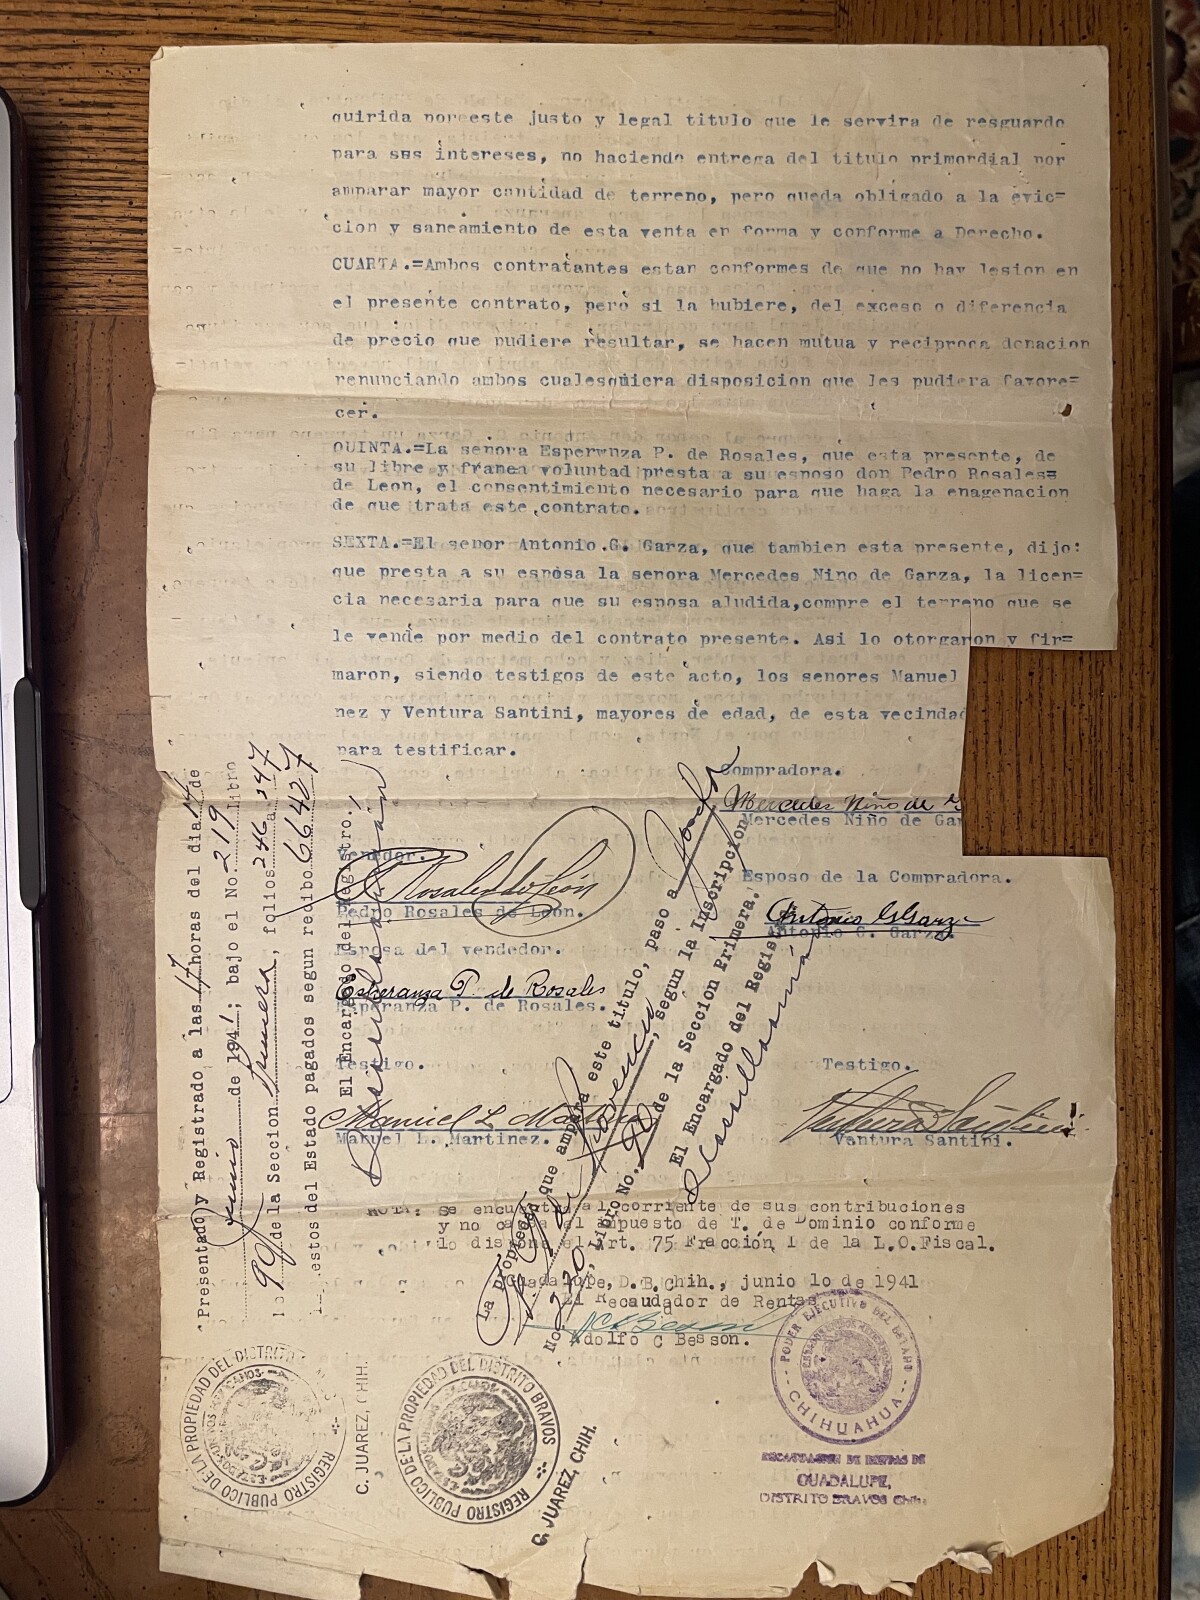 quirida por este justo y legal titulo que le servira de resguardo
para sus intereses, no haciendo entrega del titulo primordial por
amparar mayor cantidad de terreno, pero queda obligado a la evic=
cion y saneamiento de esta venta en forma y conforme a Derecho.
CUARTA.=Ambos contratantes estan conformes de que no hay lesion en
el presente contrato, pero si la hubiere, del exceso o diferencia
de precio que pudiere resultar, se hacen mutua y reciproca donacion
renunciando ambos cualesquiera disposicion que les pudiera favore=
cer.
QUINTA.=La señora Esperanza P. de Rosales, que esta presente, de
su libre y franca voluntad presta a su esposo don Pedro Rosales=
de Leon, el consentimiento necesario para que haga la enagenacion
de que trata este contrato.
SEXTA.=El señor Antonio.G. Garza, que tambien esta presente, dijo:
que presta a su esposa la señora Mercedes Nino de Garza, la licen=
cia necesaria para que su esposa aludida,compre el terreno que se
le vende por medio del contrato presente. Asi lo otorgaron y fir=
maron, siendo testigos de este acto, los señores Manuel
nez y Ventura Santini, mayores de edad, de esta vecindad
para testificar.
Compradora.
Mercedes Niño de G
Mercedes Niño de Gar
Vendedor.
P Rosales de León
Pedro Rosales de León.
Esposo de la Compradora.
Antonio G Garza
Antonio G. Garza.
Esposa del vendedor.
Esperanza P. de Rosales
Esperanza P. de Rosales.
Testigo.
Manuel L Martinez
Manuel L. Martinez.
Testigo.
Ventura Santini
Ventura Santini.
NOTA: Se encuentra al corriente de sus contribuciones
y no causa el impuesto de T. de Dominio conforme
lo dispone el Art. 75 Fracción I de la L.O.Fiscal.
Guadalupe, D.B.Chih., junio 10 de 1941
El Recaudador de Rentas
Adolfo C Besson.
Presentado y Registrado a las 17 horas del dia 14 de
Junio de 1941; bajo el No. 219 Libro
90 de la Seccion Primera, folios 246 a 347
estos del Estado pagados segun recibo 66427
El Encargado del Registro.
La propiedad que ampara este titulo, paso a
segun la Inscripcion
No. 220, Libro No. de la Seccion Primera.
El Encargado del Regis
REGISTRO PUBLICO DE LA PROPIEDAD DEL DISTRITO
C. JUAREZ, CHIH.
REGISTRO PUBLICO DE LA PROPIEDAD DEL DISTRITO BRAVOS
C. JUAREZ, CHIH.
PODER EJECUTIVO DEL
CHIHUAHUA
RECAUDACION DE RENTAS DE
GUADALUPE,
DISTRITO BRAVOS Chih.